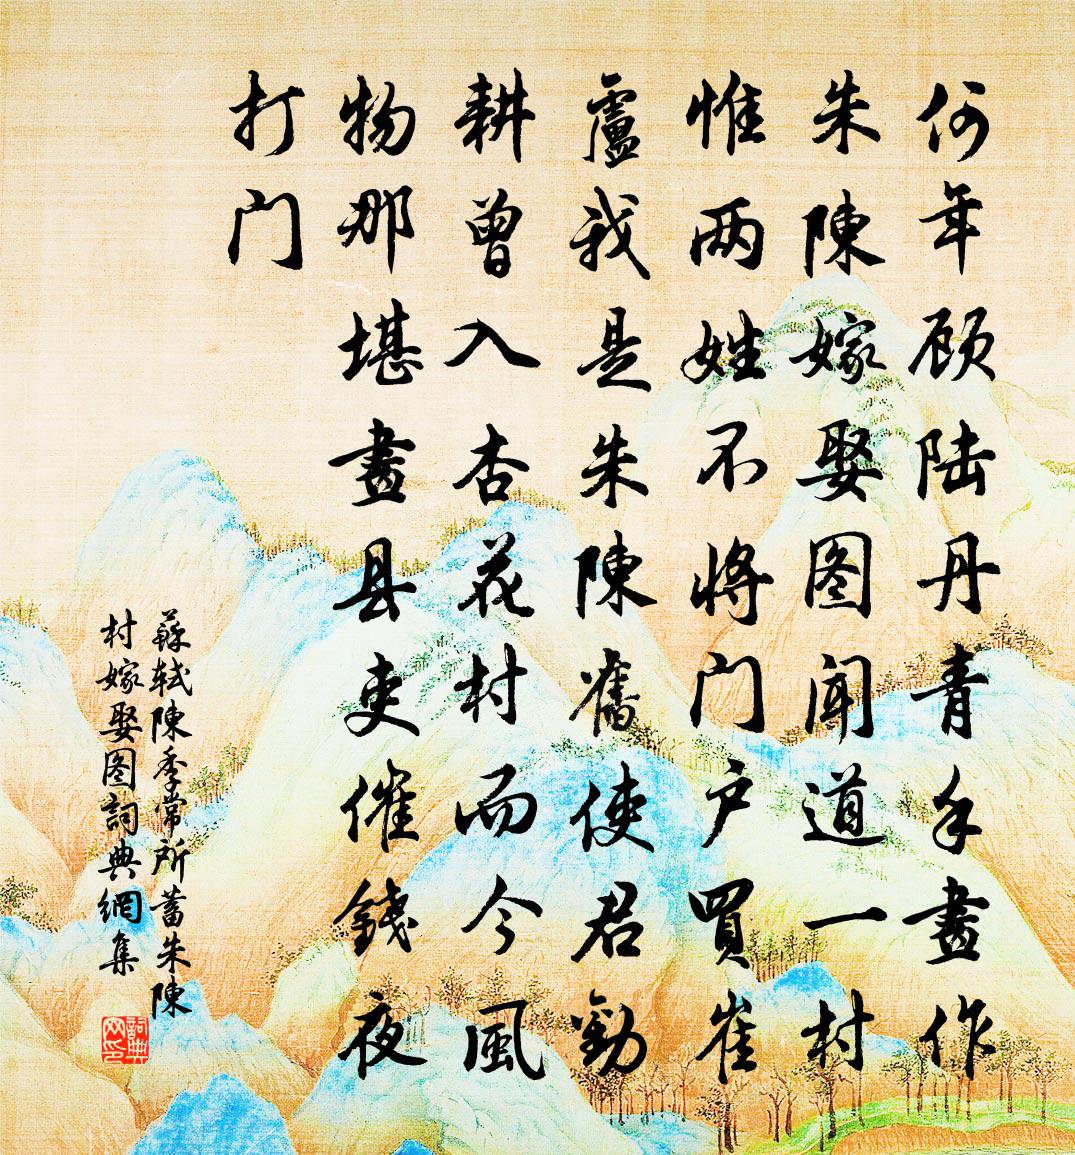 何年顾陆丹青手畫作
朱陳嫁娶图闻道一村
惟两姓不将门户買崔
盧我是朱陳舊使君勸
耕曾入杏花村而今風
物那堪畫县吏催錢夜
打门
蘇軾陳季常所蓄朱陳
村嫁娶图詞典網集
詞典
网印